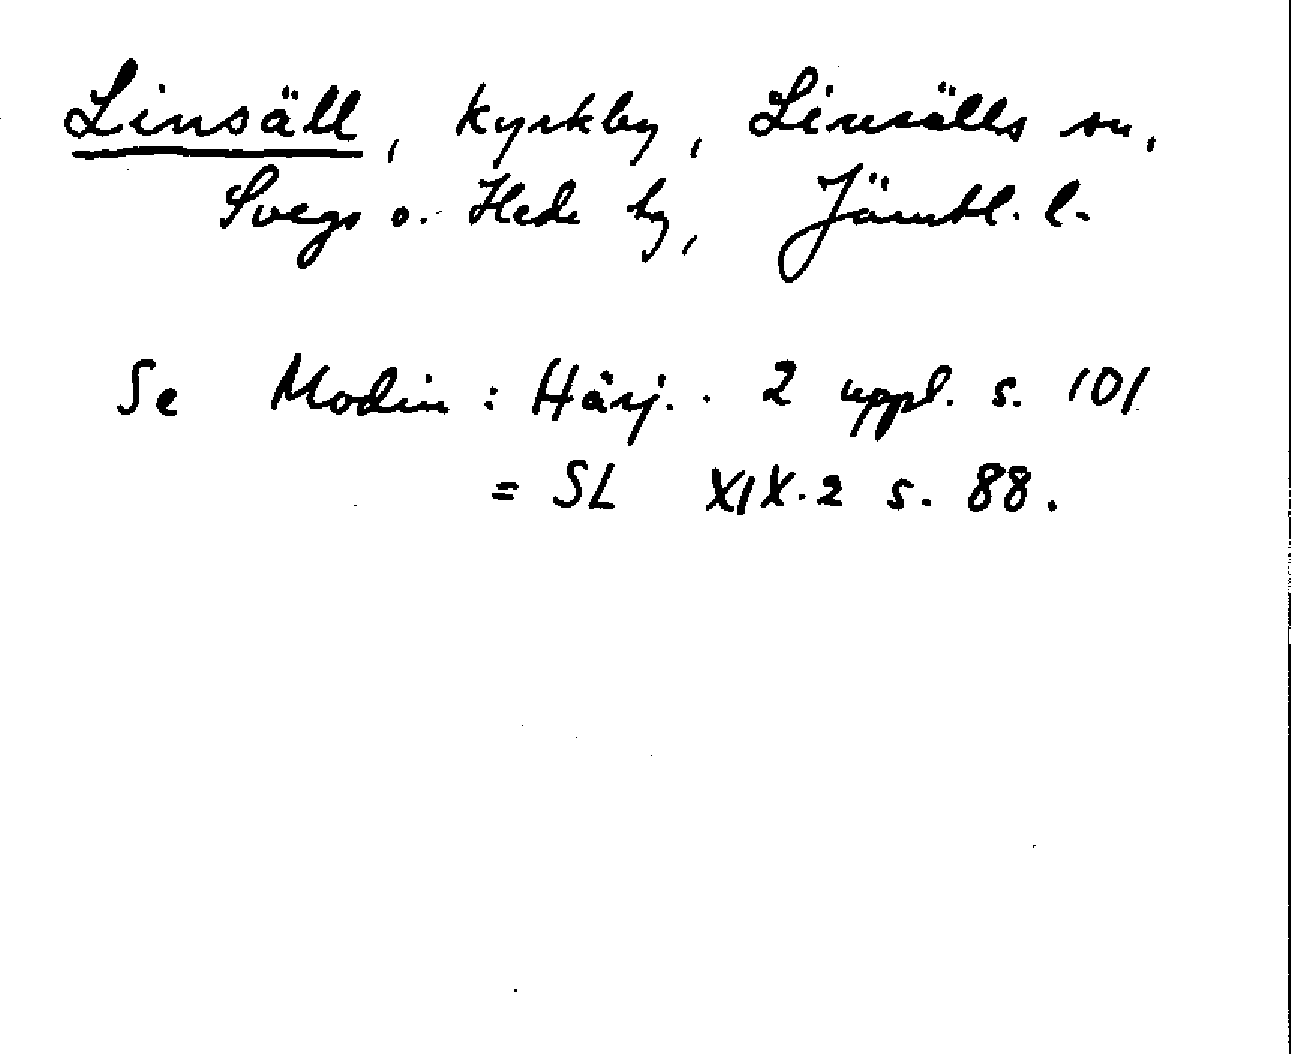 Linsäll, kyrkby, Linsälls sn,
Svegs o. Hede tg, Jämtl. l.
Se Modin: Härj. . 2 uppl. s. 101
= SL XIX.2 s. 88.